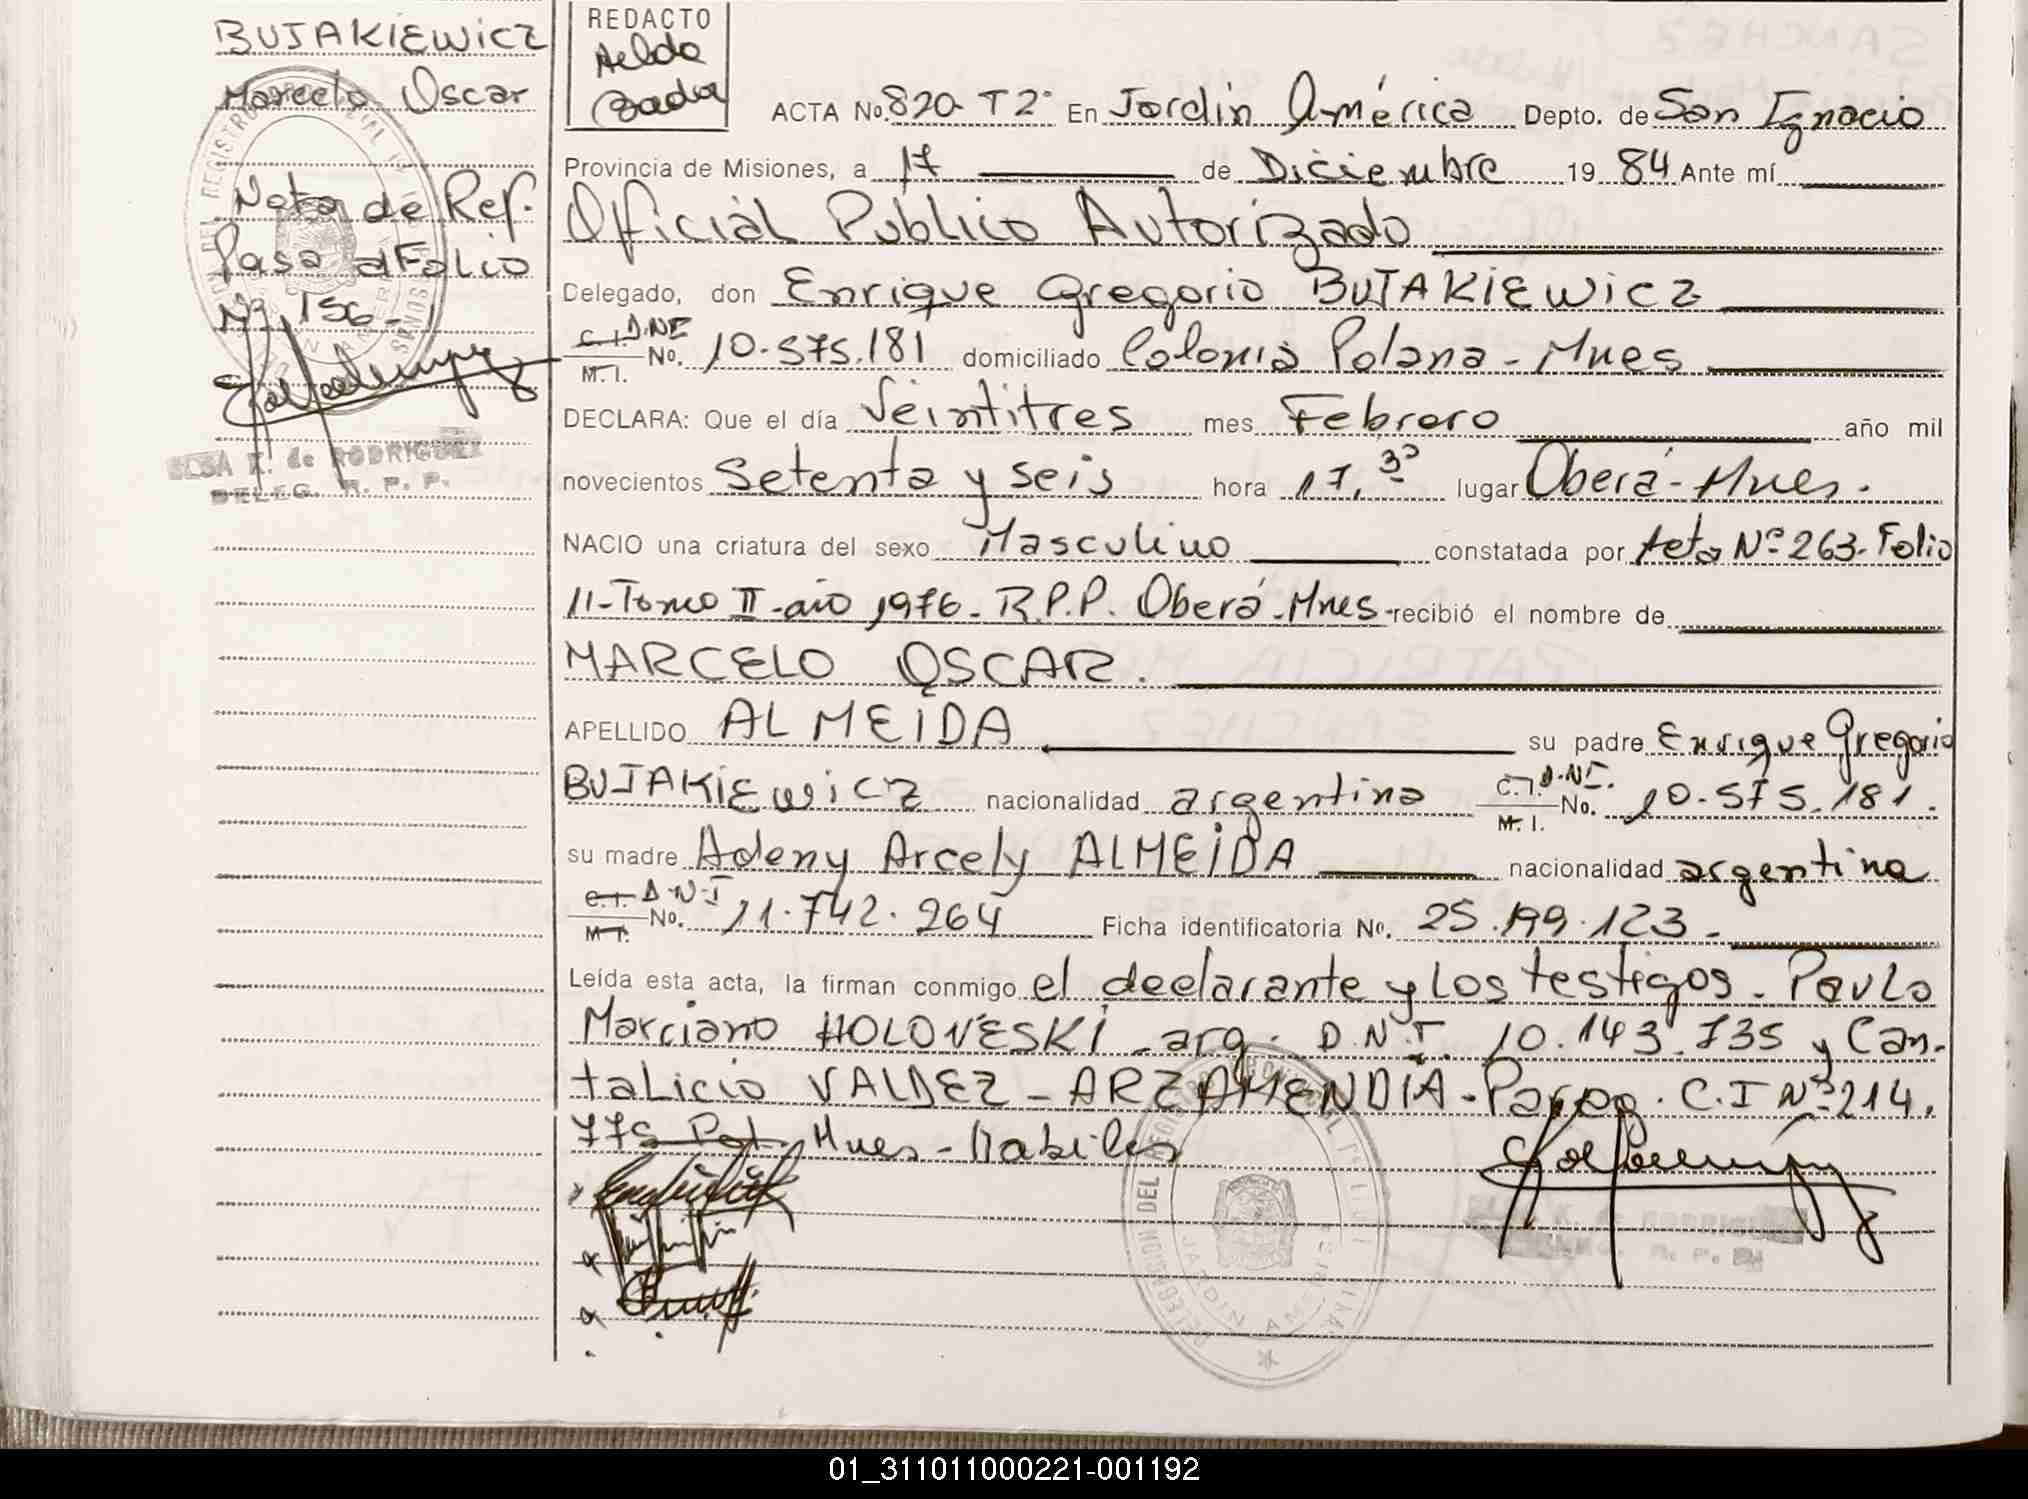 BUJAKIEWICZ
Marcelo Oscar
Nota de Ref.
Pasa al Folio
Nº 156-
ELSA K. de RODRIGUEZ
DELEG. R. P. P.
REDACTO
ACTA No. 820- T2º En Jardín América Depto. de San Ignacio
Provincia de Misiones, a 17 de Diciembre 19 84 Ante mí
Oficial Publico Autorizado
Delegado, don Enrique Gregorio BUJAKIEWICZ
C.I. D.N.I.
M.I. No. 10.575.181 domiciliado Colonia Polana - Mnes
DECLARA: Que el día Veintitres mes Febrero año mil
novecientos Setenta y seis hora 17,30 lugar Oberá - Mnes.
NACIO una criatura del sexo Masculino constatada por Acta Nº 263- Folio
11-Tomo II-año 1976- R.P.P. Oberá-Mnes- recibió el nombre de
MARCELO OSCAR.
APELLIDO ALMEIDA su padre Enrique Gregorio
BUJAKIEWICZ nacionalidad argentina C.I. D.N.I. M.I. No. 10.575.181.
su madre Adeny Arcely ALMEIDA nacionalidad argentina
C.I. D.N.I
M.I. No. 11.742.264 Ficha identificatoria No. 25.199.123-
Leída esta acta, la firman conmigo el declarante y los testigos - Paulo
Marciano HOLOVESKI - arg. D.N.I. 10.143.735 y Can-
talicio VALDEZ - ARZAMENDIA - Parag. C.I Nº 214.
775 Mnes - Habiles
01_311011000221-001192